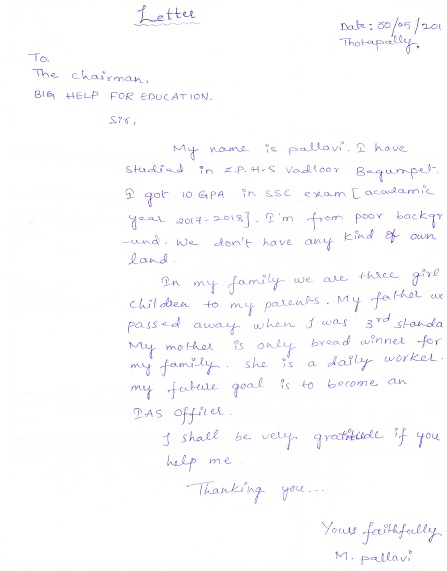 Letter
Date: 30/05/201
Thotapally.
To.
The chairman,
BIG HELP FOR EDUCATION.
Sir,
My name is pallavi. I have
studied in Z.P.H.S Vadloor Begumpet.
I got 10 GPA in SSC exam [acadamic
year 2017-2018]. I'm from poor backgr
-und. We don't have any kind of own
land.
In my family we are three girl
children to my parents. My father wa
passed away when I was 3rd standa
My mother is only bread winner for
my family. she is a daily worker.
my future goal is to become an
IAS officer.
I shall be very gratitude if you
help me.
Thanking you...
Yours faithfully
M. pallavi